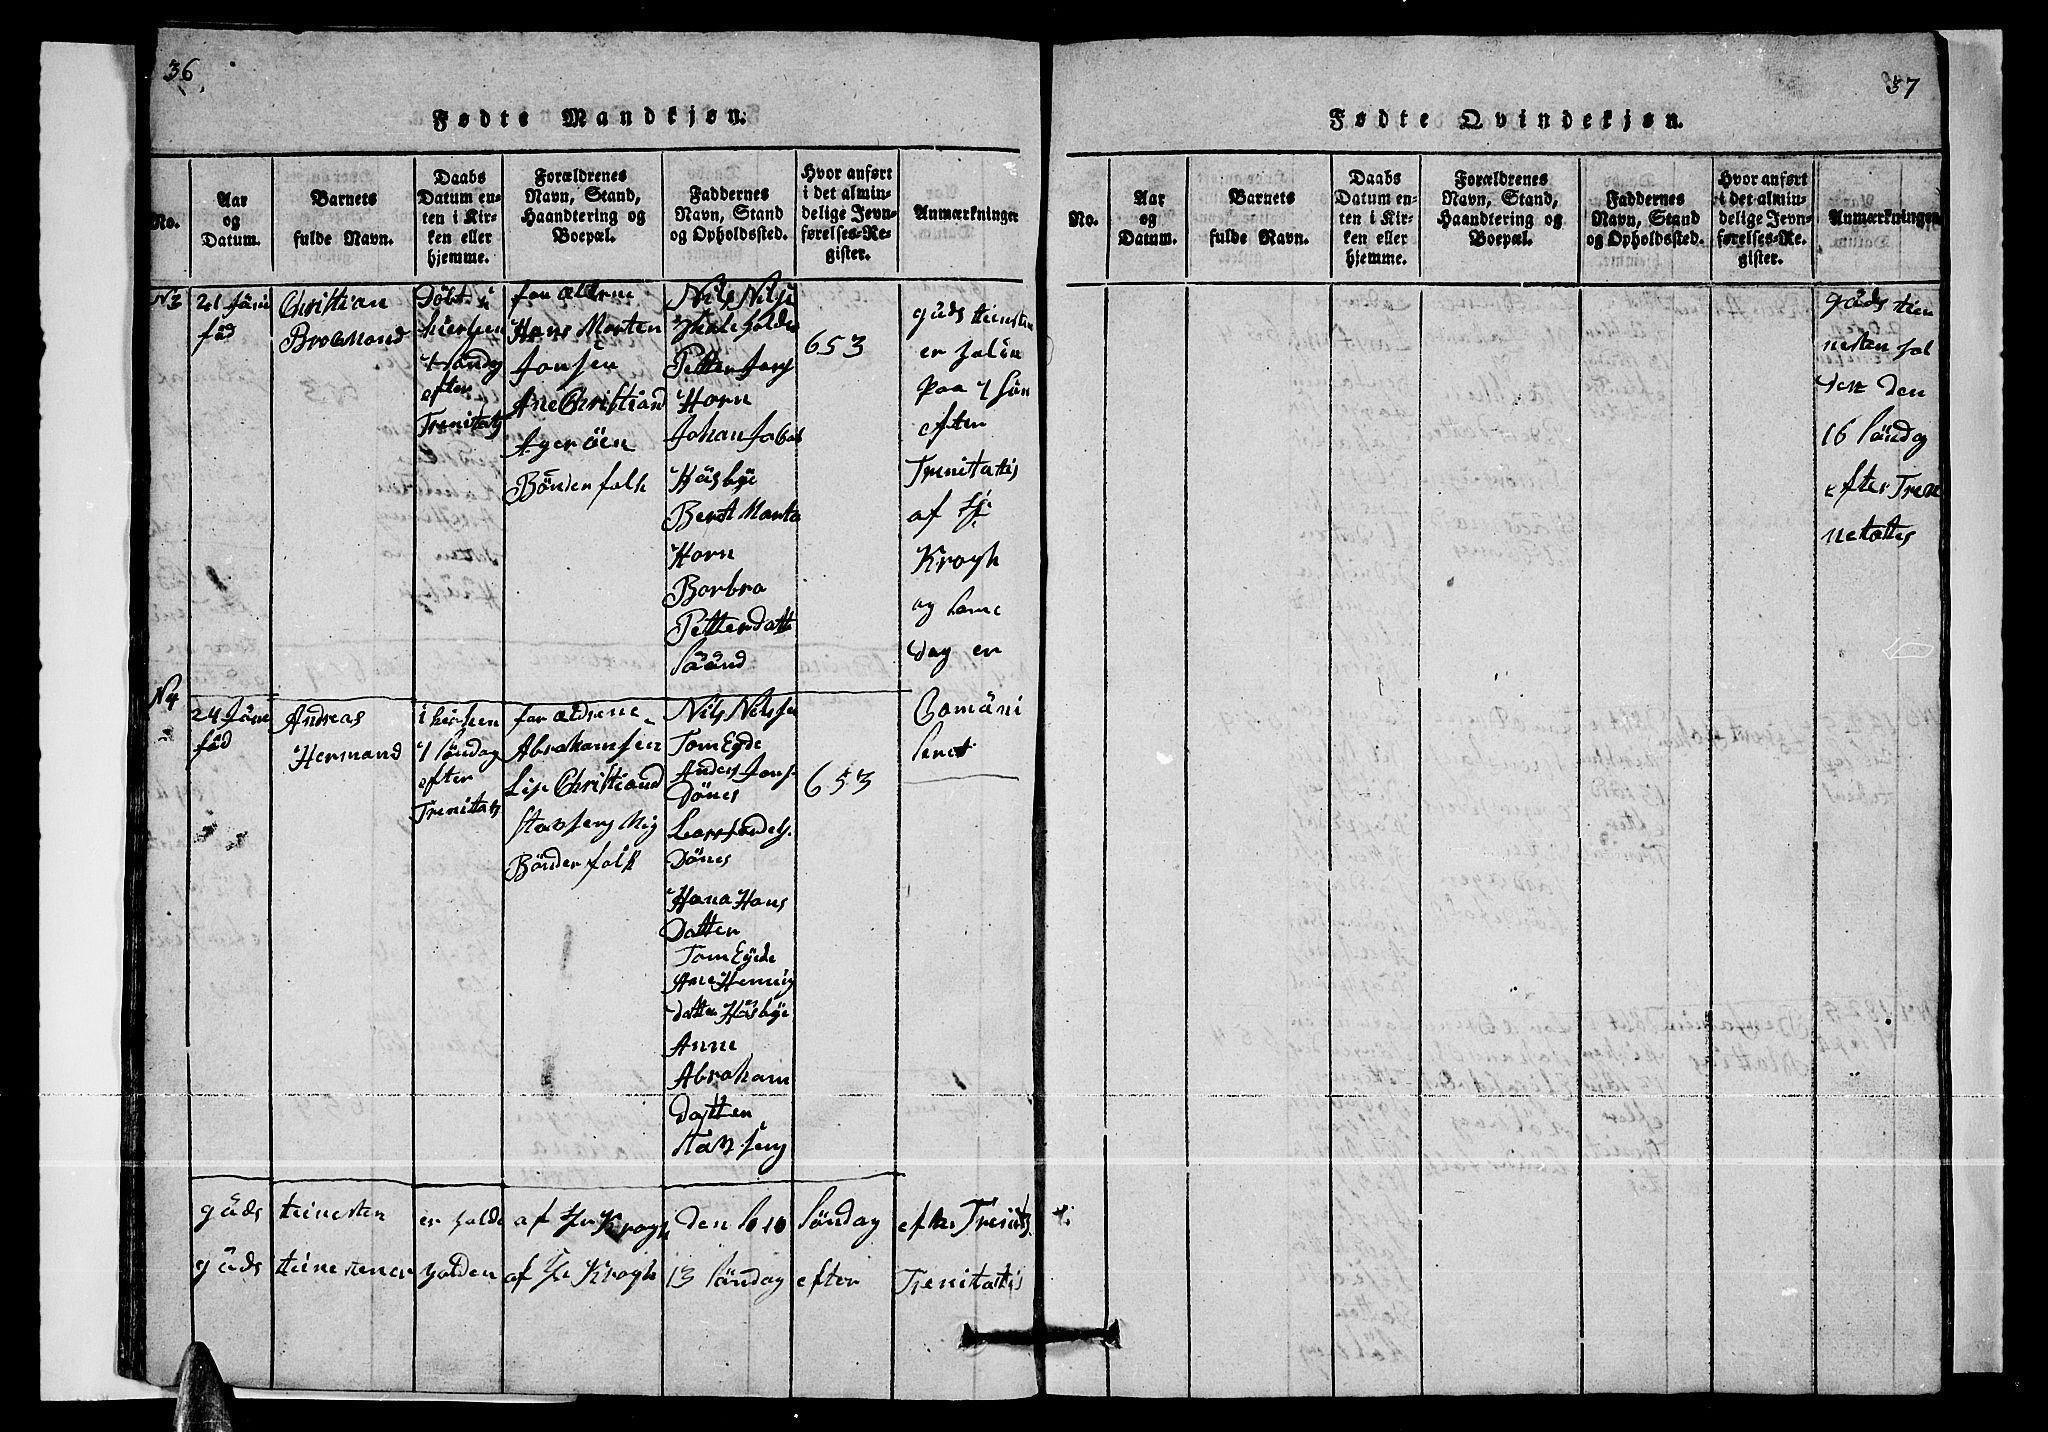 36
Fødte Mandkjøn.
No.
Aar
og
Datum.
Barnets
fulde Navn.
Daabs
Datum en-
ten i Kir-
ken eller
hjemme.
Forældrenes
Navn, Stand,
Haandtering og
Boepæl.
Faddernes
Navn, Stand
og Opholdssted.
Hvor anført
i det almin-
delige Jevn-
førelses-Re-
gister.
Anmærkninger
N3
21 Juni
fød
Christian
Brodmand
Døbt i
kierken
4 søndag
efter
Trenitatis
foræildrene
Hans Morten
Jonsen
Ane Christiand
Agerøen
Bønderfolk
Nils Nilse
Petter Jons
Horn
Johan Jakob
Husbye
Beret Marta
Horn
Borbro
Petterdatte
sund
653
guds tienste
er holden
paa 4 søn
efter
Trenitatis
af Hr
Krogh
og same
dag er
Comuni
seret
N4
24 Juni
fød
Andreas
Hermand
i kirken
4 søndag
efter
Trenitatis
for ældrene
Abrahamsen
Lise Christiand
Stavseng Mig
Bønderfolk
Nils Nelssen
Tom Eyde
Anders Jons
Dønes
Dønes
Hana Hans
Datter
Tom Eyede
Ane Henrig
datter Husbye
Anne
Abraham
Datter
Stavseng
653
guds teinesten er holde af Hr Krogh Den 10 søndag efter Trenitatis
guds teinesten er holden af Hr Krogh 13 søndag efter Trenitatis
37
Fødte Qvindekjøn.
No.
Aar
og
Datum.
Barnets
fulde Navn.
Daabs
Datum en-
ten i Kir-
ken eller
hjemme.
Forældrenes
Navn, Stand,
Haandtering og
Boepæl.
Faddernes
Navn, Stand
og Opholdssted.
Hvor anført
i det almin-
delige Jevn-
førelses-Re-
gister.
Anmærkninger
guds tien
nesten hol
den den
16 søndag
efter Tren
netattes